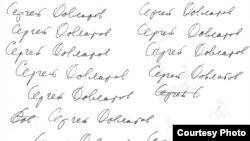 Сергей Довлатов Сергей Довлатов
Сергей Довлатов Сергей Довлатов
Сергей Довлатов Сергей Довлатов
Сергей Довлатов Сергей Довлатов
Сергей Довлатов Сергей С.
Сергей Довлатов
Courtesy Photo